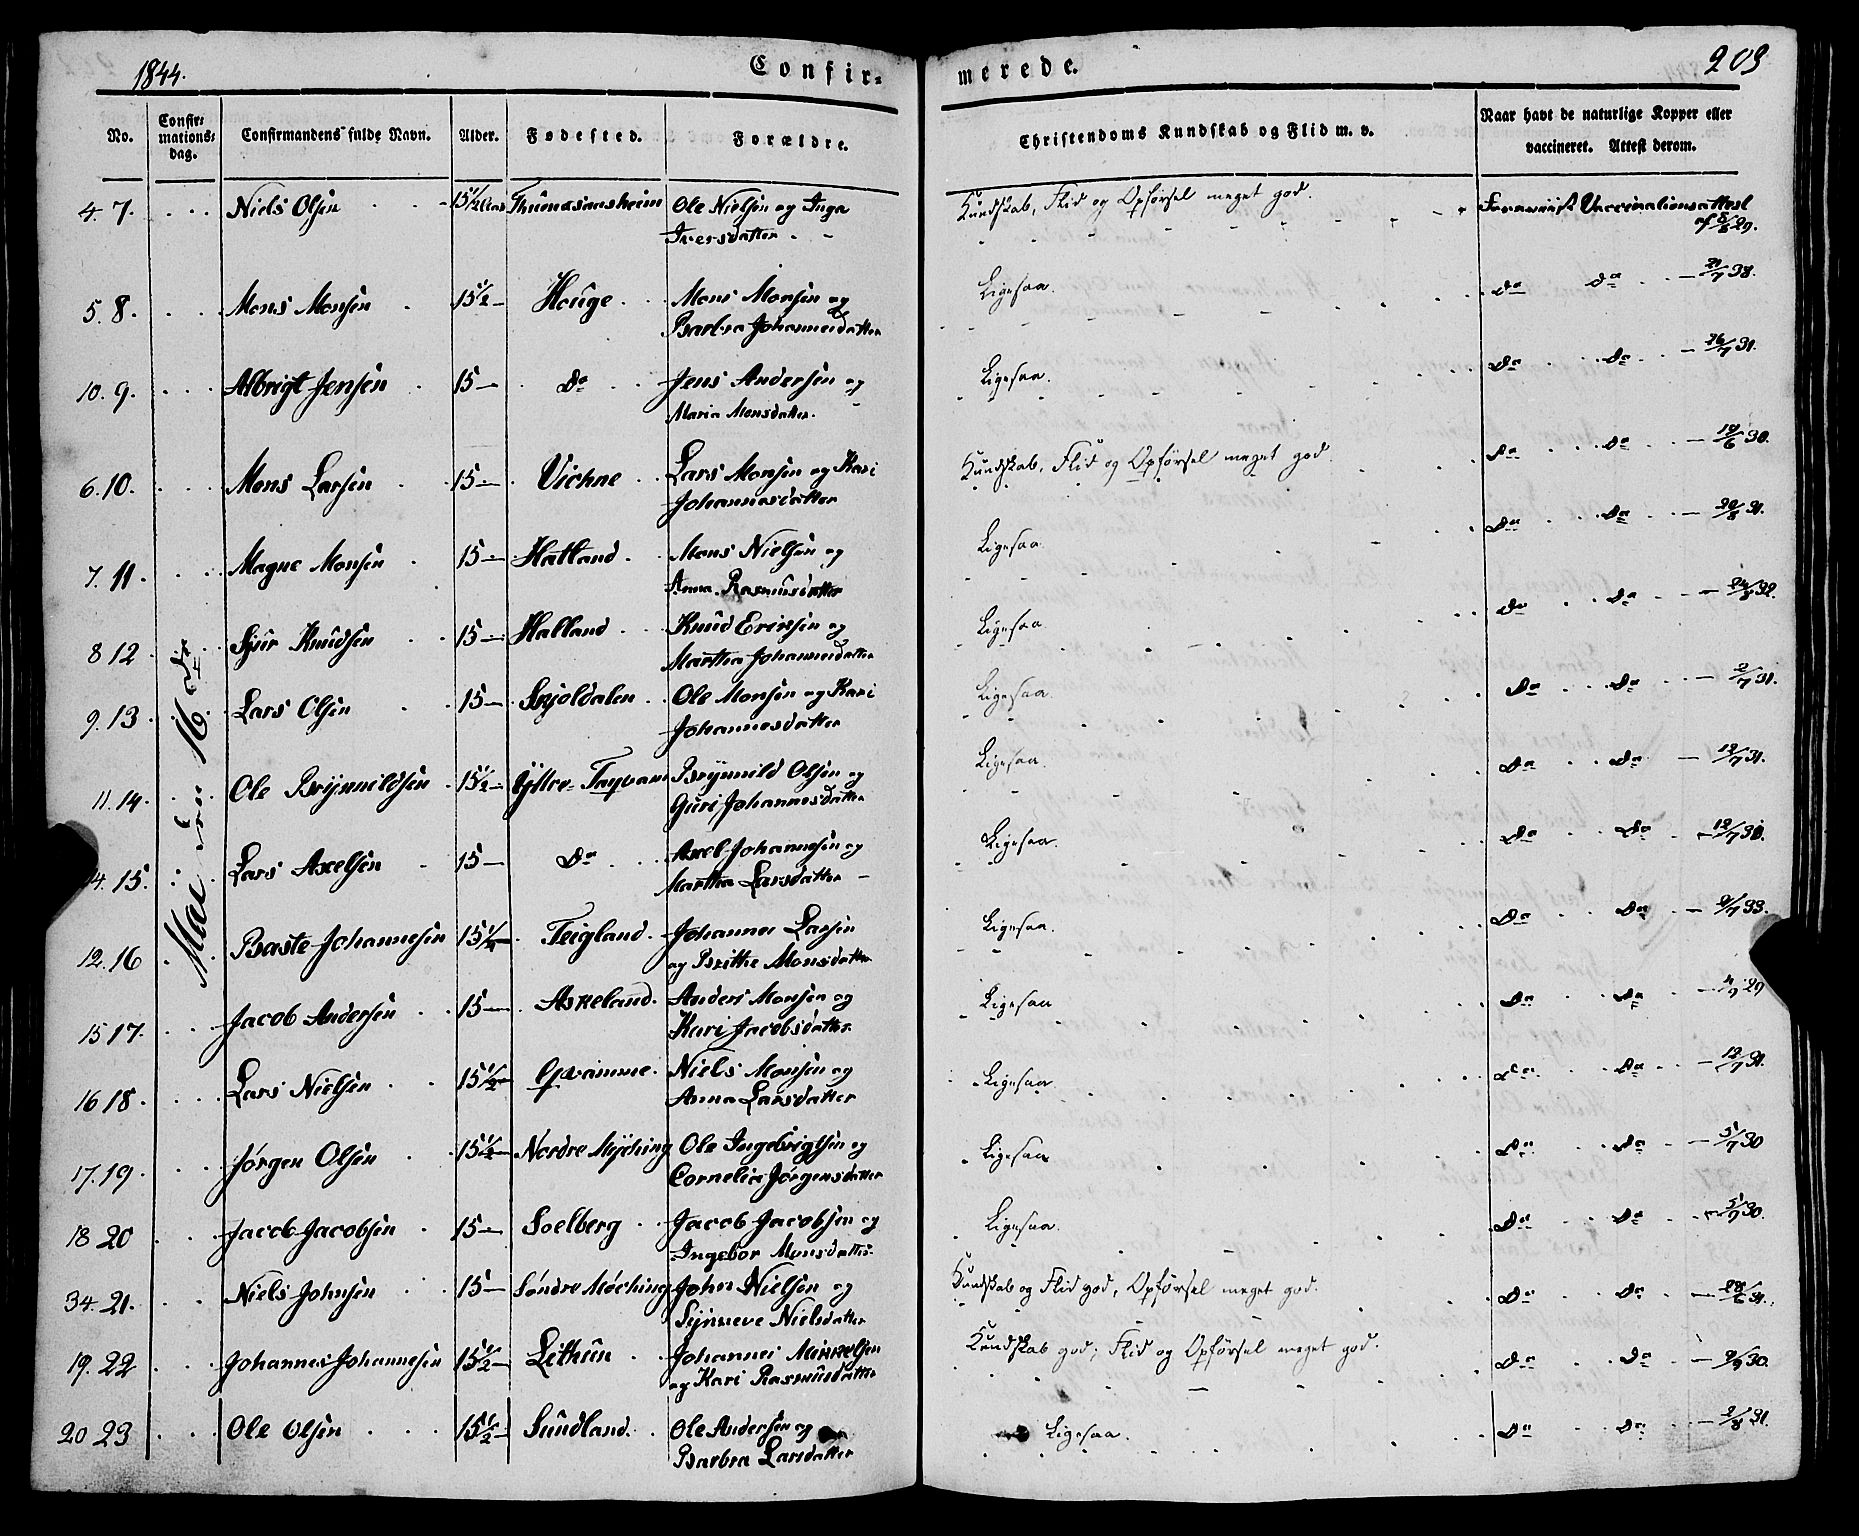 1844. Confir= merede. 209
No. Confir= mations= dag. Confirmandens fulde Navn. Alder. Fødested. Forældre. Christendoms Kundskab og Flid m. v. Naar havt de naturlige Kopper eller vaccineret. Attest derom.
4. 7. Niels Olsen 15 1/2 Ole Nielsen og Inga Kundskab, Flid og Opførsel meget god. Foreviist Vaccinationsattest
Iversdatter af 5/8 29.
5. 8. Mons Monsen 15 1/2 Houge Mons Monsen og Ligesaa. Do Do
Barbra Johannesdatter
10. 9. Albrigt Jensen 15 Do Jens Andersen og Ligesaa. Do Do 26/7 31.
Maria Monsdatter.
6. 10. Mons Larsen 15 Vichne Lars Monsen og Kari Kundskab, Flid og Opførsel meget god Do Do 19/6 30.
Johannesdatter
7. 11. Magne Monsen 15 Hatland Mons Nielsen og Ligesaa. Do Do
Anna Rasmusdatter
8 12 Sjur Knudsen 15 Halland Knud Eriksen og Ligesaa. Do Do 24/8 32.
Martha Johannesdatter
9. 13 Lars Olsen 15 Skjoldalen Ole Monsen og Kari Ligesaa. Do Do 2/7 31.
Johannesdatter
11. 14. Ole Brynnildsen 15 1/2 Brynnild Olsen og Ligesaa. Do Do 12/7 31.
Guri Johannesdatter
14. 15. Lars Axelsen 15 Do Axel Johannesen og Ligesaa. Do Do
Martha Larsdatter
12. 16 Baste Johannesen 15 1/4 Teigland Johannes Larsen Ligesaa. Do Do 9/7 33.
og Brithe Monsdatter
15 17. Jacob Andersen 15 Askeland. Anders Monsen og Ligesaa Do Do 4/9 29
Kari Jacobsdatter
16 18. Lars Nielsen 15 1/2 Qvamme. Niels Monsen og Ligesaa. Do Do 12/7 31.
Anna Larsdatter
17. 19. Jørgen Olsen 15 1/2 Nordre Ole Ingebrigtsen og Ligesaa Do Do 5/7 30
Cornelia Jørgensdatter
18 20 Jacob Jacobsen 15 Soelberg Jacob Jacobsen og Ligesaa. Do Do 5/9 30.
Ingebor Monsdatter
34. 21. Niels Johnsen 15 Søndre John Nielsen og Kundskab og Flid god, Opførsel meget god. Do Do 28/6 31.
Synneve Nielsdatter
19. 22 Johannes Johannesen 15 1/2 Lethun Johannes Mikkelsen Kundskab god; Flid og Opførsel meget god. Do Do 9/9 30.
og Kari Rasmusdatter
20 23 Ole Olsen 15 1/2 Sundland. Ole Andersen og Ligesaa. Do Do 2/8 31.
Barbra Larsdatter
Mai den 16de